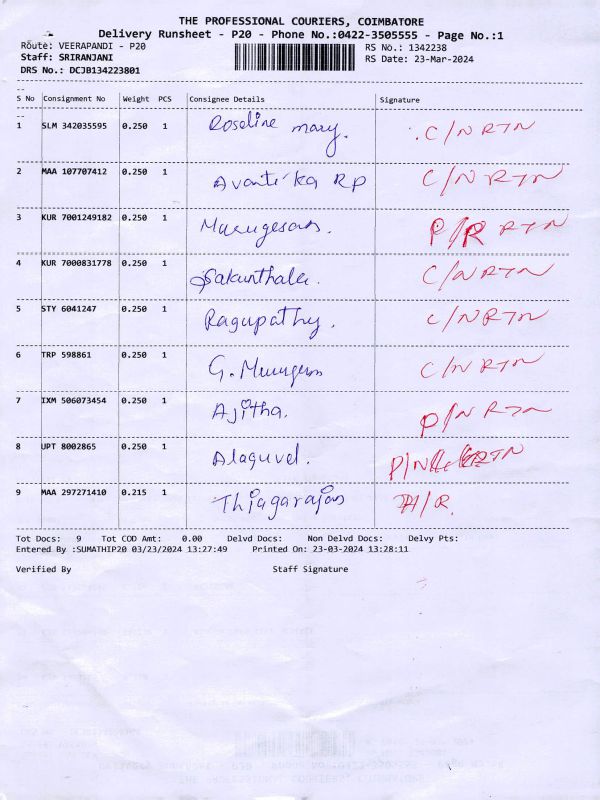 THE PROFESSIONAL COURIERS, COIMBATORE
Delivery Runsheet - P20 - Phone No.:0422-3505555 - Page No.:1
Route: VEERAPANDI - P20 RS No.: 1342238
Staff: SRIRANJANI RS Date: 23-Mar-2024
DRS No.: DCJB134223801
S No Consignment No Weight PCS Consignee Details Signature
1 SLM 342035595 0.250 1 Roseline mary. C/N RTN
2 MAA 107707412 0.250 1 Avantika RP C/N RTN
3 KUR 7001249182 0.250 1 Murugesan. P/R RTN
4 KUR 7000831778 0.250 1 Sakunthala. C/N RTN
5 STY 6041247 0.250 1 Ragupathy. C/N RTN
6 TRP 598861 0.250 1 G. Murugesn C/N RTN
7 IXM 506073454 0.250 1 Ajitha. P/N RTN
8 UPT 8002865 0.250 1 Alaguvel. P/N RTN
9 MAA 297271410 0.215 1 Thiagarajan H/R.
Tot Docs: 9 Tot COD Amt: 0.00 Delvd Docs: Non Delvd Docs: Delvy Pts:
Entered By :SUMATHIP20 03/23/2024 13:27:49 Printed On: 23-03-2024 13:28:11
Verified By Staff Signature